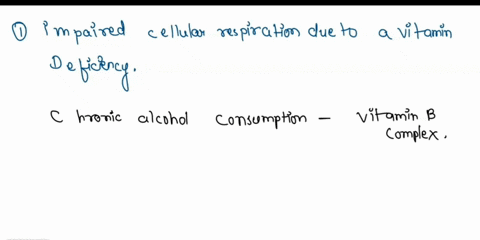 ① Impaired cellular respiration due to a vitamin
Deficiency.
Chronic alcohol consumption - Vitamin B
Complex.